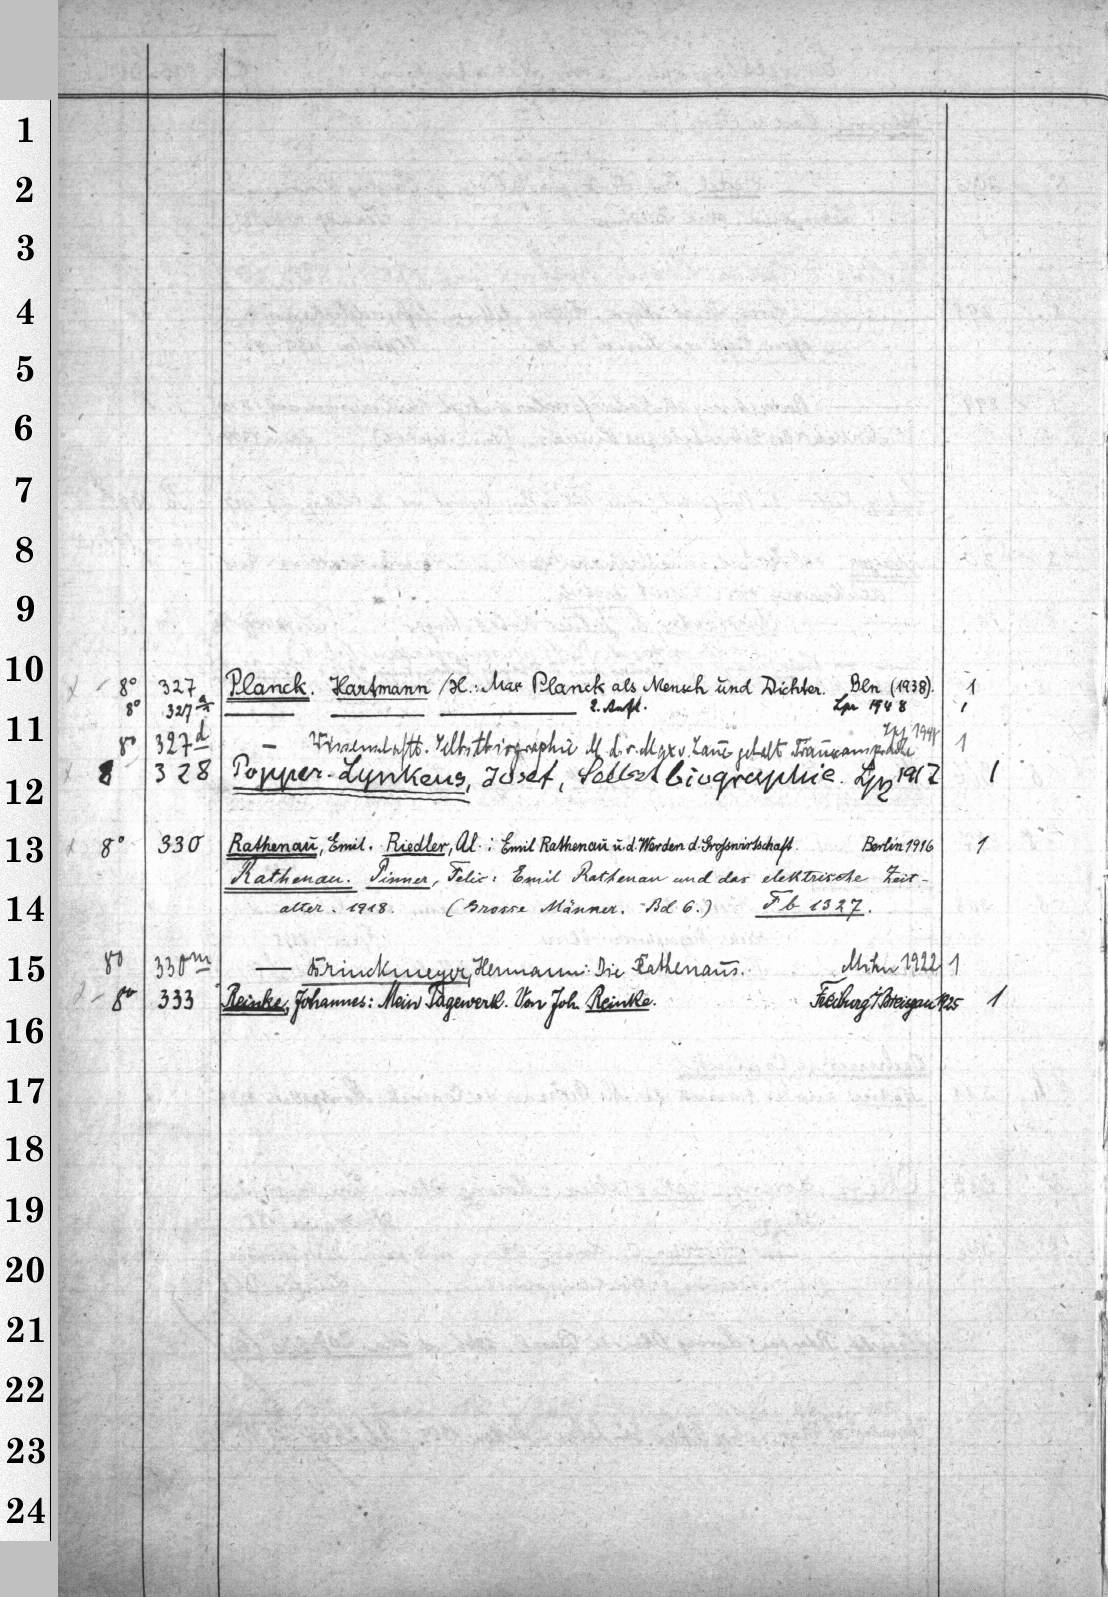 1
2
3
4
5
6
7
8
9
10
8° 327 Planck. Hartmann /H.: Max Planck als Mensch und Dichter. Bln (1938). 1
8° 327a — — — 2. Aufl. Lpz 1948 1
11
8° 327d — Wissenschaftl. Selbstbiographie M. d. v. Max v. Laue gehalt. Traueransprache Lpz 1948 1
8 328 Popper-Lynkeus, Josef, Selbstbiographie. Lpz 1917 1
12
13 8° 330 Rathenau, Emil. Riedler, Al.: Emil Rathenau u. d. Werden d. Grosswirtschaft. Berlin 1916 1
Rathenau. Pinner, Felix: Emil Rathenau und das elektrische Zeit-
14 alter. 1918. (Grosse Männer. Bd 6.) Fb 1327.
15 8° 330m — Brinckmeyer, Hermann: Die Rathenaus. Mchn 1922 1
8° 333 Reinke, Johannes: Mein Tagewerk. Von Joh. Reinke. Freiburg i/Breisgau 1925 1
16
17
18
19
20
21
22
23
24